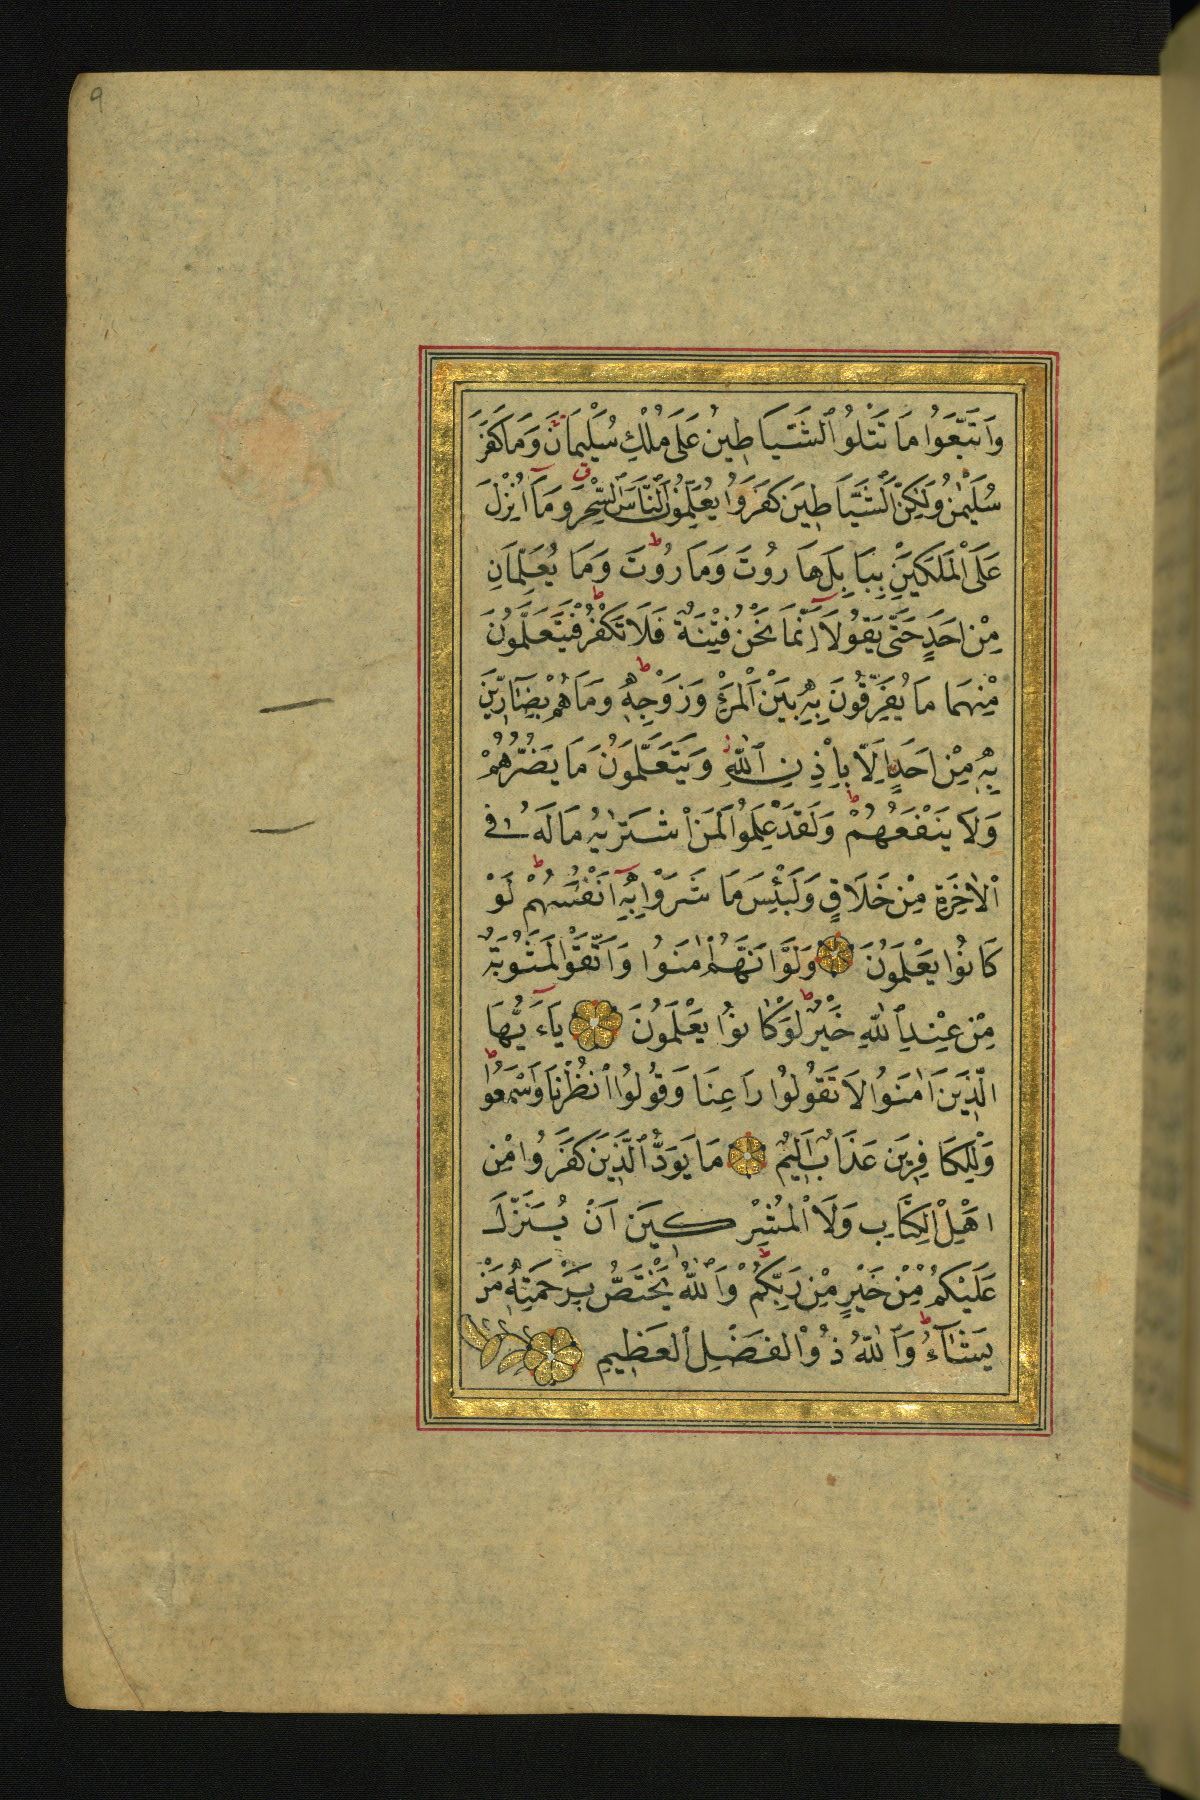 9
وَاتَّبَعُوا مَا تَتْلُوا الشَّيَاطِينُ عَلَى مُلْكِ سُلَيْمَانَ وَمَا كَفَرَ
سُلَيْمٰنُ وَلَكِنَّ الشَّيَاطِينَ كَفَرُوا يُعَلِّمُونَ النَّاسَ السِّحْرَ وَمَآ اُنْزِلَ
عَلَى الْمَلَكَيْنِ بِبَابِلَ هَارُوتَ وَمَارُوتَ وَمَا يُعَلِّمَانِ
مِنْ اَحَدٍ حَتَّى يَقُولَآ اِنَّمَا نَحْنُ فِتْنَةٌ فَلَا تَكْفُرْ فَيَتَعَلَّمُونَ
مِنْهُمَا مَا يُفَرِّقُونَ بِهِ بَيْنَ الْمَرْءِ وَزَوْجِهِ وَمَا هُمْ بِضَآرِّينَ
بِهِ مِنْ اَحَدٍ اِلَّا بِاِذْنِ اللّٰهِ وَيَتَعَلَّمُونَ مَا يَضُرُّهُمْ
وَلَا يَنْفَعُهُمْ وَلَقَدْ عَلِمُوا لَمَنِ اشْتَرٰيهُ مَا لَهُ فِي
الْاٰخِرَةِ مِنْ خَلَاقٍ وَلَبِئْسَ مَا شَرَوْا بِهِٓ اَنْفُسَهُمْ لَوْ
كَانُوا يَعْلَمُونَ وَلَوْ اَنَّهُمْ اٰمَنُوا وَاتَّقَوْا لَمَثُوبَةٌ
مِنْ عِنْدِ اللّٰهِ خَيْرٌ لَوْ كَانُوا يَعْلَمُونَ يَآءَيُّهَا
الَّذِينَ اٰمَنُوا لَا تَقُولُوا رَاعِنَا وَقُولُوا انْظُرْنَا وَاسْمَعُوا
وَلِلْكَافِرِينَ عَذَابٌ اَلِيمٌ مَا يَوَدُّ الَّذِينَ كَفَرُوا مِنْ
اَهْلِ الْكِتَابِ وَلَا الْمُشْرِكِينَ اَنْ يُنَزَّلَ
عَلَيْكُمْ مِنْ خَيْرٍ مِنْ رَبِّكُمْ وَاللّٰهُ يَخْتَصُّ بِرَحْمَتِهِ مَنْ
يَشَآءُ وَاللّٰهُ ذُو الْفَضْلِ الْعَظِيمِ